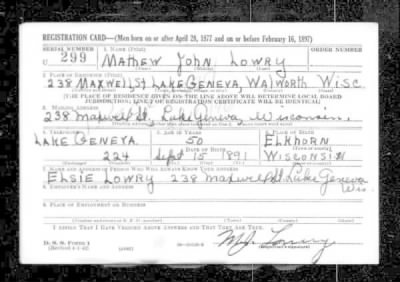 REGISTRATION CARD—(Men born on or after April 28, 1877 and on or before February 16, 1897)
SERIAL NUMBER 1. NAME (Print) ORDER NUMBER
U 299 Mathew John Lowry
(First) (Middle) (Last)
2. PLACE OF RESIDENCE (Print)
238 Maxwell St Lake Geneva, Walworth Wisc
[THE PLACE OF RESIDENCE GIVEN ON THE LINE ABOVE WILL DETERMINE LOCAL BOARD
JURISDICTION; LINE 2 OF REGISTRATION CERTIFICATE WILL BE IDENTICAL]
3. MAILING ADDRESS
238 Maxwell St, Lake Geneva Wisconsin.
4. TELEPHONE 5. AGE IN YEARS 6. PLACE OF BIRTH
Lake Geneva 50 Elkhorn
DATE OF BIRTH (Town or county)
224 Sept 15 1891 Wisconsin
7. NAME AND ADDRESS OF PERSON WHO WILL ALWAYS KNOW YOUR ADDRESS
Elsie Lowry 238 Maxwell St Lake Geneva
Wis.
8. EMPLOYER'S NAME AND ADDRESS
9. PLACE OF EMPLOYMENT OR BUSINESS
I AFFIRM THAT I HAVE VERIFIED ABOVE ANSWERS AND THAT THEY ARE TRUE.
D. S. S. Form 1
(Revised 4-1-42) (over)
M J. Lowry
(Registrant's signature)